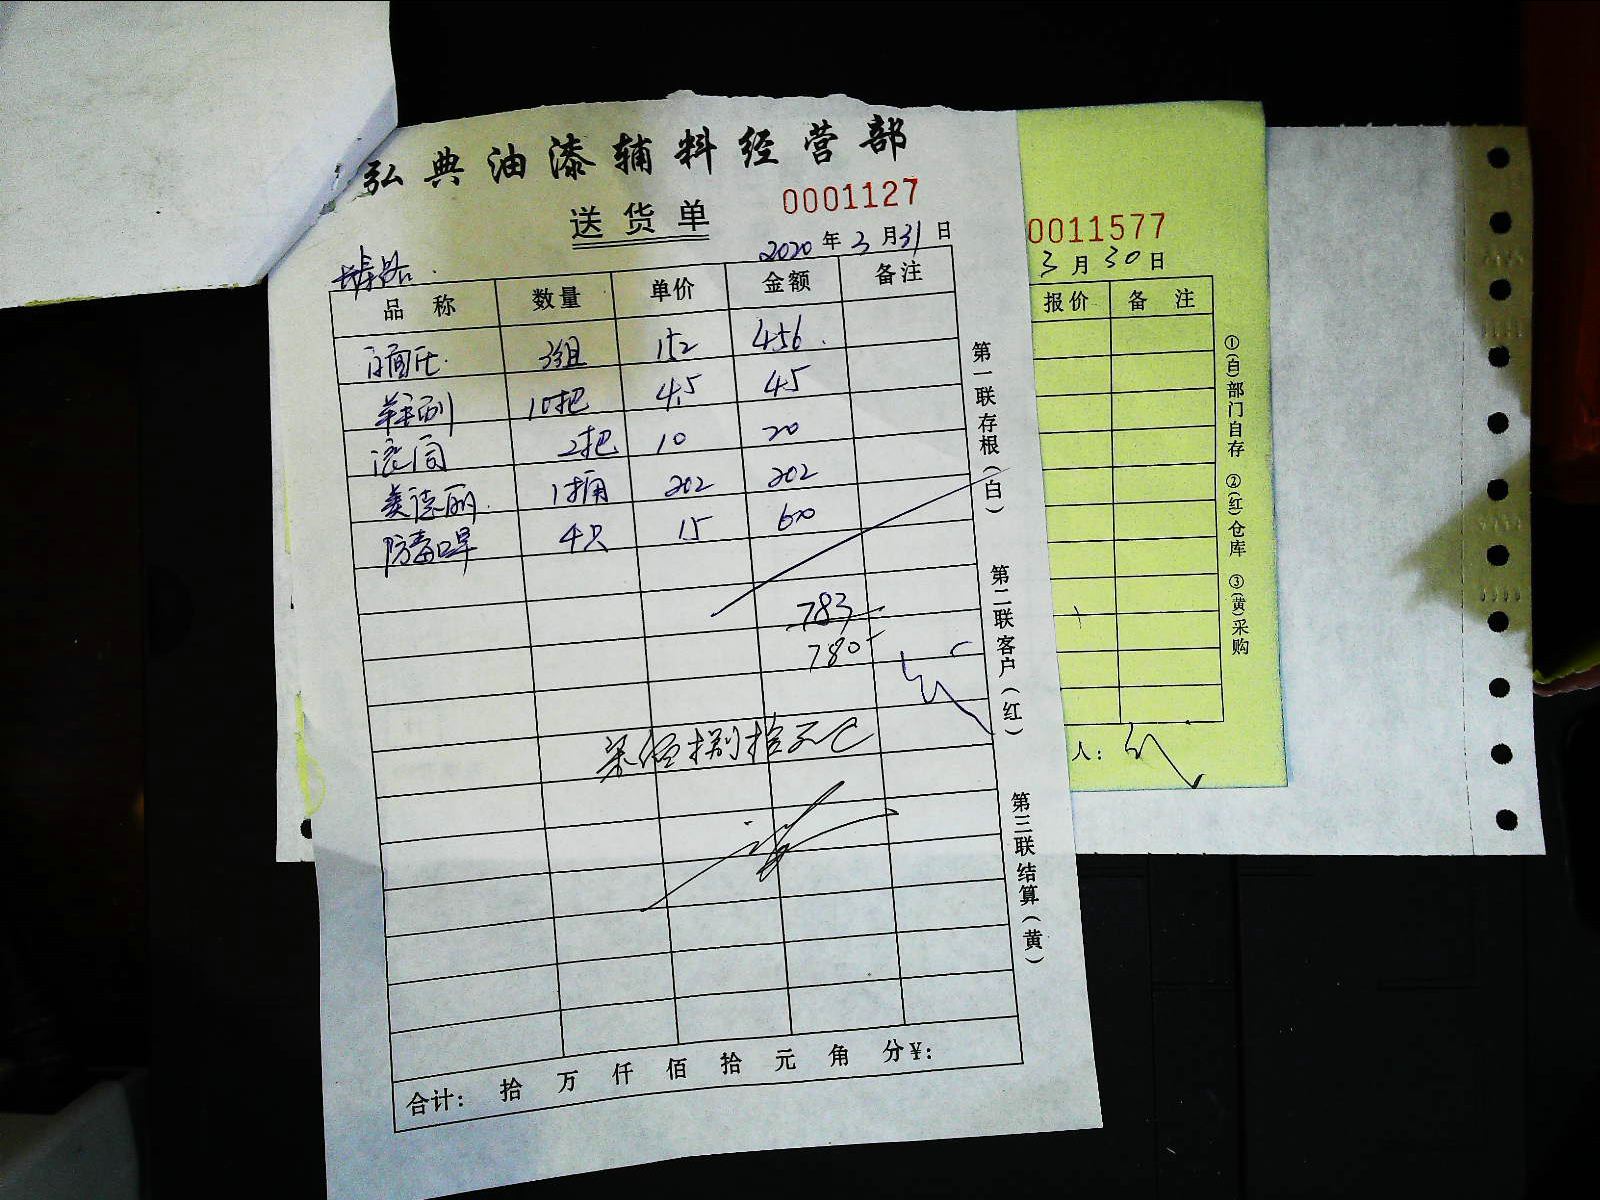 弘典油漆辅料经营部
送货单
0001127
2020年3月31日
品称 数量 单价 金额 备注
3组 152 456
羊毛刷 10把 4.5 45
滚筒 2把 10 20
美德丽 1桶 202 202
防毒口罩 4只 15 60
783
780
柒佰捌拾元
合计： 拾 万 仟 佰 拾 元 角 分￥：
第一联存根（白）
第二联客户（红）
第三联结算（黄）
0011577
3月30日
报价 备注
①(白)部门自存 ②(红)仓库 ③(黄)采购
人：